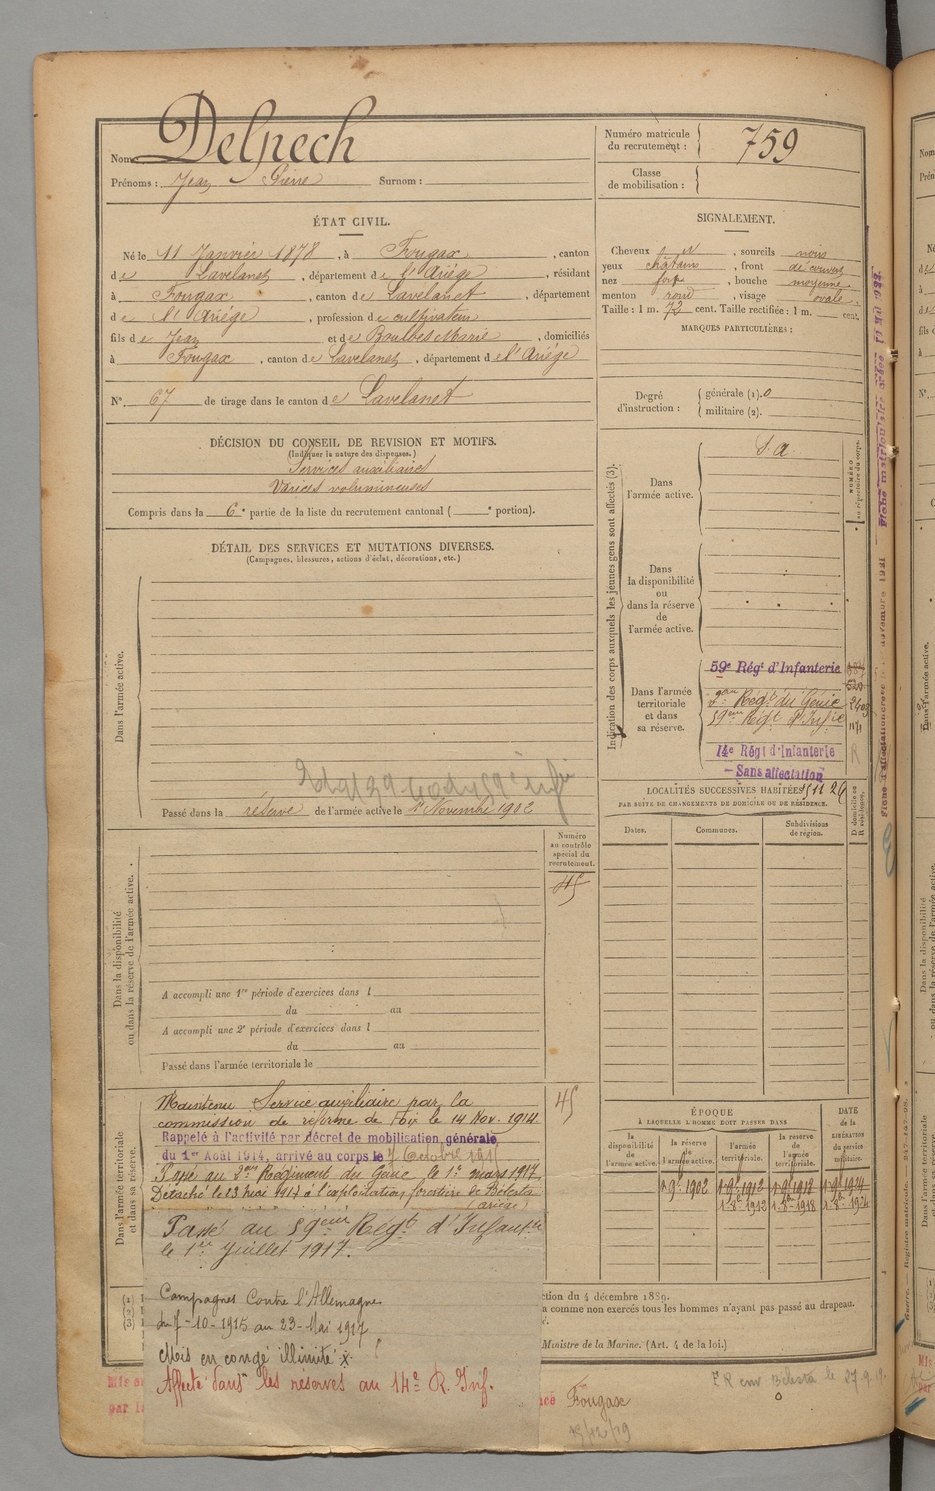 Nom : Delpech
Prénoms : Jean Pierre Surnom :
Numéro matricule du recrutement : 759
Classe de mobilisation :
ÉTAT CIVIL.
Né le 11 Janvier 1878, à Fougax, canton
de Lavelanet, département de l'Ariège, résidant
à Fougax, canton de Lavelanet, département
de l'Ariège, profession de cultivateur
fils de Jean et de Boulbes Marie, domiciliés
à Fougax, canton de Lavelanet, département de l'Ariège
N°. 67 de tirage dans le canton de Lavelanet
SIGNALEMENT.
Cheveux et, sourcils noirs
yeux châtains, front découvert
nez fort, bouche moyenne
menton rond, visage ovale.
Taille : 1 m. 73 cent. Taille rectifiée : 1 m. cent.
MARQUES PARTICULIÈRES :
Degré d'instruction : générale (1). 0
militaire (2).
DÉCISION DU CONSEIL DE REVISION ET MOTIFS.
(Indiquer la nature des dispenses.)
Services auxiliaires
Varices volumineuses
Compris dans la 6e partie de la liste du recrutement cantonal ( e portion).
DÉTAIL DES SERVICES ET MUTATIONS DIVERSES.
(Campagnes, blessures, actions d'éclat, décorations, etc.)
Dans l'armée active.
Passé dans la réserve de l'armée active le 1 Novembre 1902
Indication des corps auxquels les jeunes gens sont affectés (3).
Dans l'armée active.
S. a.
Dans la disponibilité ou dans la réserve de l'armée active.
Dans l'armée territoriale et dans sa réserve.
59e Régt d'Infanterie
2eme Régt du Génie
59eme Régt d'Infie
14e Régt d'Infanterie
Sans affectation
NUMÉRO au répertoire du corps.
LOCALITÉS SUCCESSIVES HABITÉES
PAR SUITE DE CHANGEMENTS DE DOMICILE OU DE RÉSIDENCE.
Dates. Communes. Subdivisions de région.
D domicile ou R résidence.
Numéro au contrôle spécial du recrutement.
45
Dans la disponibilité ou dans la réserve de l'armée active.
A accompli une 1re période d'exercices dans l
du au
A accompli une 2e période d'exercices dans l
du au
Passé dans l'armée territoriale le
Dans l'armée territoriale et dans sa réserve.
45
Maintenu Service auxiliaire par la
commission de réforme de Foix le 14 Nov. 1914.
Rappelé à l'activité par décret de mobilisation générale
du 1er Août 1914, arrivé au corps le 7 Octobre 1915
Passé au 2eme Régiment du Génie le 1er mars 1917
Détaché le 23 mai 1917 à l'exploitation forestière de Bélesta
(Ariège)
Passé au 59eme Régt d'Infanterie
le 1er Juillet 1917.
Campagnes Contre l'Allemagne
du 7-10-1915 au 23-Mai 1917
Mis en congé illimité
Affecté dans les réserves au 14e R. Inf.
ÉPOQUE
À LAQUELLE L'HOMME DOIT PASSER DANS
la disponibilité de l'armée active. la réserve de l'armée active. l'armée territoriale. la réserve de l'armée territoriale.
DATE de la LIBÉRATION du service militaire.
1-9bre-1902 1-9-1912 1-9-1918 1-9-1924
1-8bre-1912 1-8bre-1918 1-8bre-1924
ction du 4 décembre 1889.
a comme non exercés tous les hommes n'ayant pas passé au drapeau.
Ministre de la Marine. (Art. 4 de la loi.)
Fougax